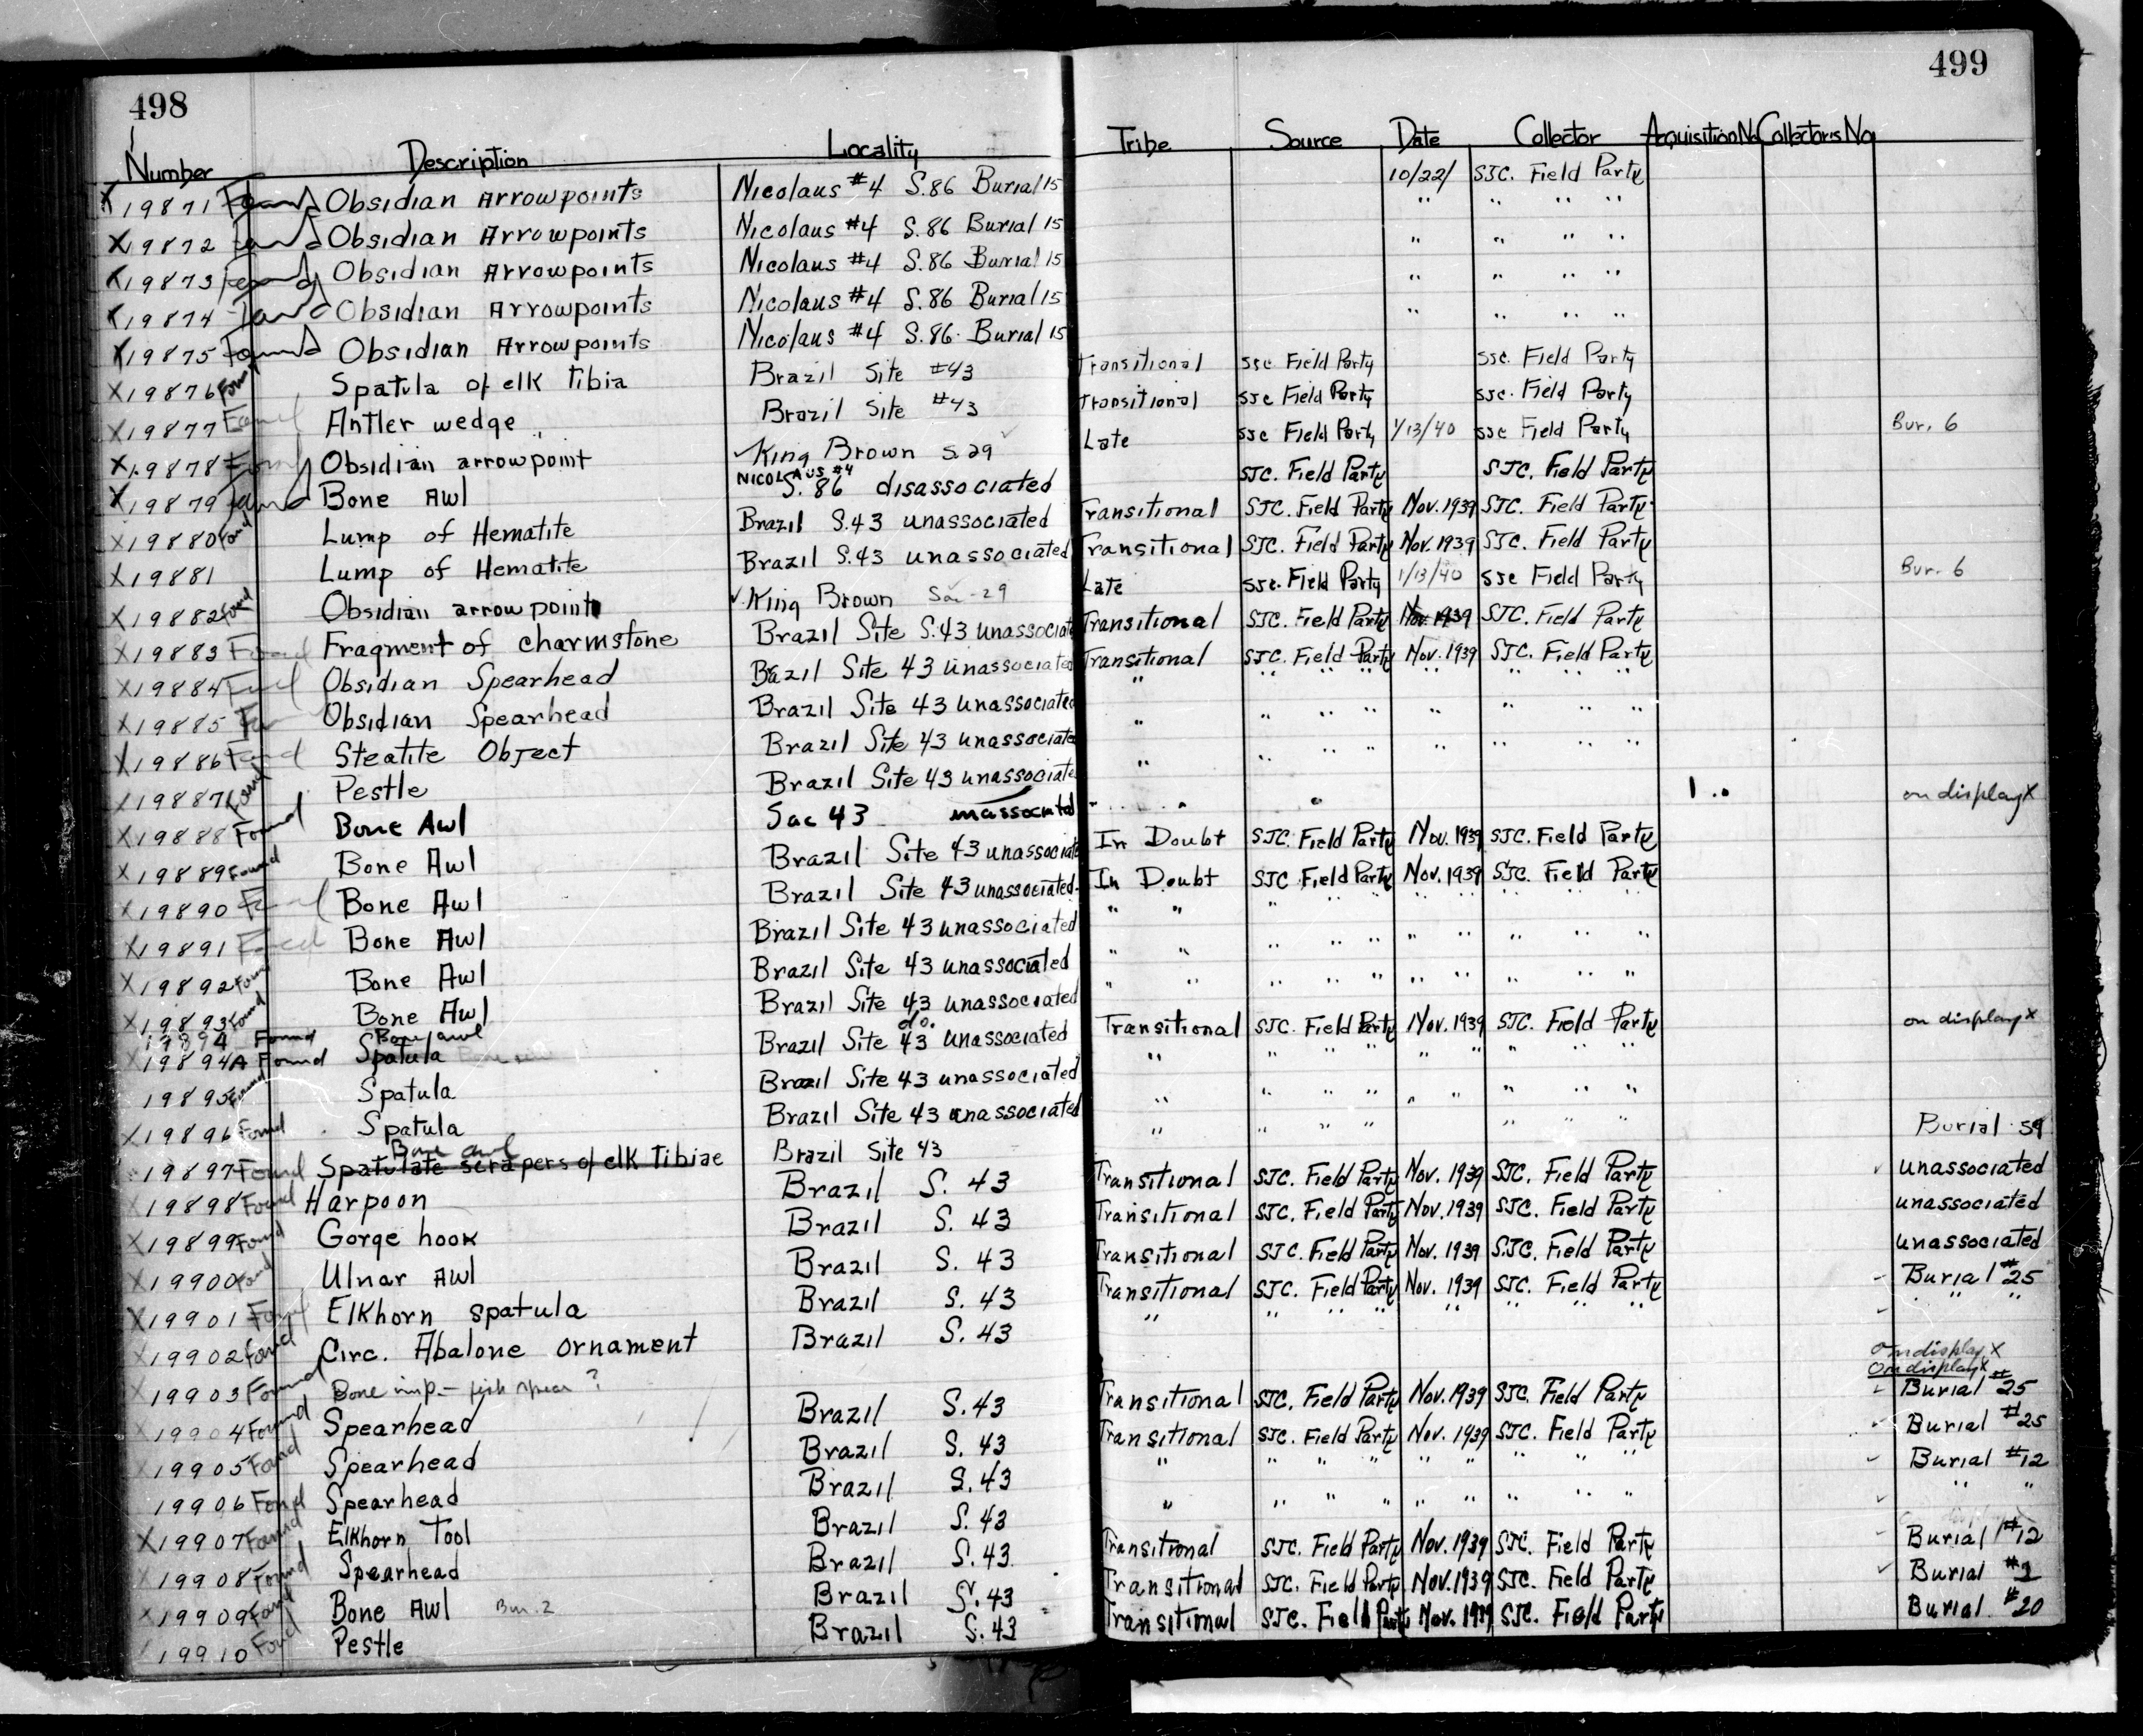 498
499
Number Description Locality Tribe Source Date Collector Acquisition No Collectors No.
X 19871 Found Obsidian Arrowpoints Nicolaus #4 S.86 Burial 15 10/22/ SJC. Field Party
X 19872 Found Obsidian Arrowpoints Nicolaus #4 S.86 Burial 15 " " " "
X 19873 Found Obsidian Arrowpoints Nicolaus #4 S.86 Burial 15 " " " "
X 19874 Found Obsidian Arrowpoints Nicolaus #4 S.86 Burial 15 " " " "
X 19875 Found Obsidian Arrowpoints Nicolaus #4 S.86 Burial 15 " " " "
X 19876 Found Spatula of elk tibia Brazil Site #43 Transitional SSC Field Party SSC. Field Party
X 19877 Found Antler wedge Brazil Site #43 Transitional SJC Field Party SSC. Field Party
X 19878 Found Obsidian arrowpoint ✓ King Brown S 29 ✓ Late SSC Field Party 1/13/40 SSC Field Party Bur. 6
X 19879 Found Bone Awl NICOLAUS #4 S. 86 disassociated SJC. Field Party SJC. Field Party
X 19880 Found Lump of Hematite Brazil S.43 unassociated Transitional SJC. Field Party Nov. 1939 SJC. Field Party
X 19881 Lump of Hematite Brazil S.43 unassociated Transitional SJC. Field Party Nov. 1939 SJC. Field Party
X 19882 Found Obsidian arrowpoint ✓ King Brown Sac-29 Late SSC. Field Party 1/13/40 SSC Field Party Bur. 6
X 19883 Found Fragment of charmstone Brazil Site S.43 unassociated Transitional SJC. Field Party Nov. 1939 SJC. Field Party
X 19884 Found Obsidian Spearhead Brazil Site 43 unassociated Transitional SJC. Field Party Nov. 1939 SJC. Field Party
X 19885 Obsidian Spearhead Brazil Site 43 unassociated " " " " " " " " "
X 19886 Found Steatite Object Brazil Site 43 unassociated " " " " " " " " "
X 19887 Found Pestle Brazil Site 43 unassociated " " " " " " " " "
X 19888 Found Bone Awl Sac 43 unassociated " " " on display X
X 19889 Found Bone Awl Brazil Site 43 unassociated In Doubt SJC. Field Party Nov. 1939 SJC. Field Party
X 19890 Found Bone Awl Brazil Site 43 unassociated In Doubt SJC Field Party Nov. 1939 SJC. Field Party
X 19891 Found Bone Awl Brazil Site 43 unassociated " " " " " " " " " "
X 19892 Found Bone Awl Brazil Site 43 unassociated " " " " " " " " " "
X 19893 Found Bone Awl Brazil Site 43 unassociated " " " " " " " " " "
19894 Found Bone awl do. on display X
X 19894A Found Spatula Brazil Site 43 unassociated Transitional SJC. Field Party Nov. 1939 SJC. Field Party
19895 Found Spatula Brazil Site 43 unassociated " " " " " " " " "
X 19896 Found Spatula Brazil Site 43 unassociated " " " " " " " " "
Bone awl
19897 Found Spatulate scrapers of elk tibiae Brazil Site 43 " " " " " " " Burial 59
X 19898 Found Harpoon Brazil S. 43 Transitional SJC. Field Party Nov. 1939 SJC. Field Party ✓ unassociated
X 19899 Found Gorge hook Brazil S. 43 Transitional SJC. Field Party Nov. 1939 SJC. Field Party unassociated
X 19900 Found Ulnar Awl Brazil S. 43 Transitional SJC. Field Party Nov. 1939 SJC. Field Party unassociated
X 19901 Found Elkhorn spatula Brazil S. 43 Transitional SJC. Field Party Nov. 1939 SJC. Field Party Burial #25
X 19902 Found Circ. Abalone ornament Brazil S. 43 " " " " " " " " " "
on display X
X 19903 Found Bone imp.- fish spear ? on display X
19904 Found Spearhead Brazil S.43 Transitional SJC. Field Party Nov. 1939 SJC. Field Party Burial #25
X 19905 Found Spearhead Brazil S. 43 Transitional SJC. Field Party Nov. 1939 SJC. Field Party Burial #25
19906 Found Spearhead Brazil S.43 " " " " " " " " " Burial #12
X 19907 Found Elkhorn Tool Brazil S.43 " " " " " " " " " " "
19908 Found Spearhead Brazil S.43 Transitional SJC. Field Party Nov. 1939 SJC. Field Party Burial #12
X 19909 Found Bone Awl Bur. 2 Brazil S.43 Transitional SJC. Field Party Nov. 1939 SJC. Field Party Burial #2
19910 Found Pestle Brazil S.43 Transitional SJC. Field Party Nov. 1939 SJC. Field Party Burial #20